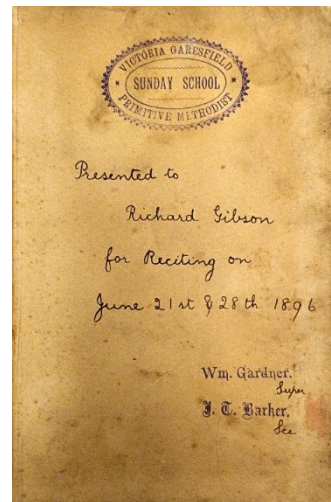 VICTORIA GARESFIELD
SUNDAY SCHOOL
PRIMITIVE METHODIST
Presented to
Richard Gibson
for Reciting on
June 21st & 28th 1896
Wm. Gardner.
Super
J. T. Barker.
Sec